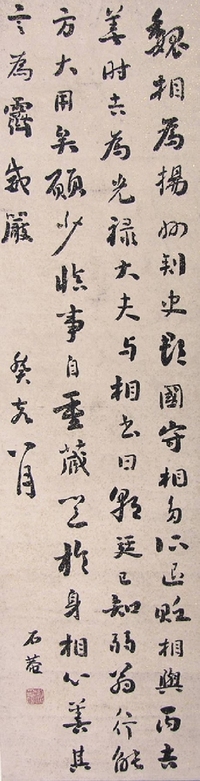 魏相為揚州刺史郡國守相多所退貶相與丙吉
善時吉為光祿大夫与相書曰朝廷已知弱翁行能
方大用矣願少臨事自重藏器於身相心善其
言為霽威嚴 癸亥八月
石菴